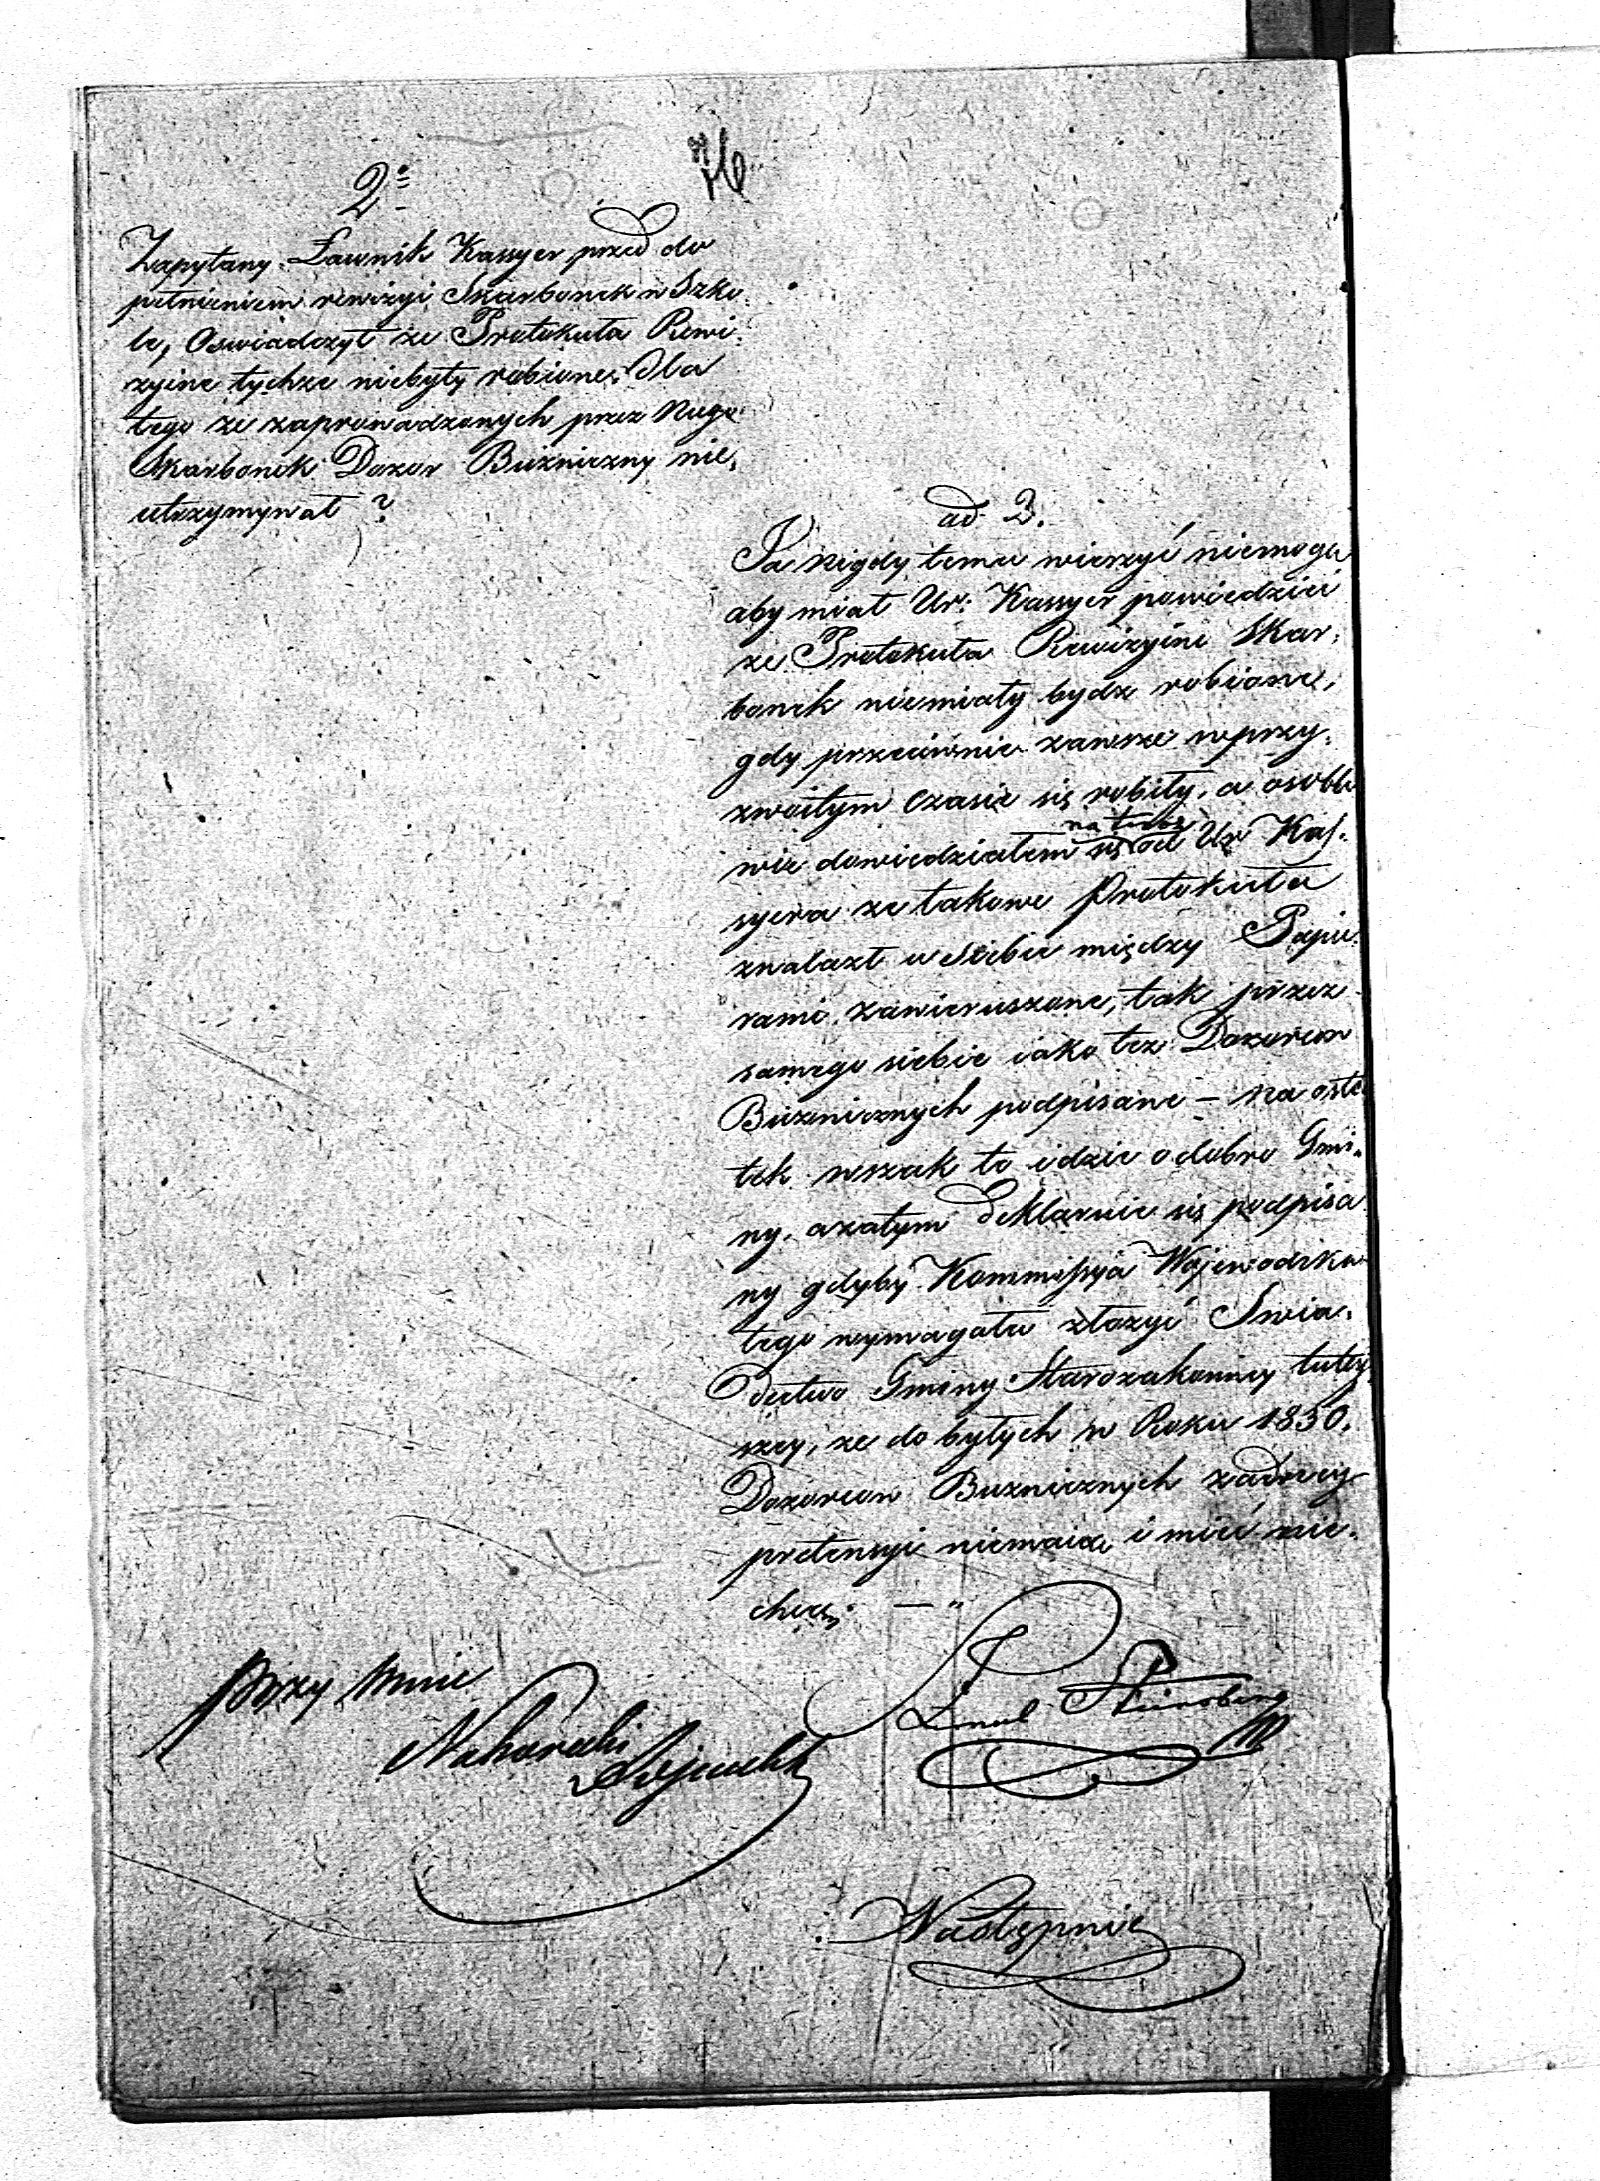 76
2º
Zapytany Ławnik Kassyer przed do
pełnieniem rewizyi Skarbonek w Szko
le, Oswiadczył że Protokuła Rewi
zyine tychże niebyły robione, dla
tego ze zaprowadzonych przez Niego
Skarbonek Dozor Buzniczny nie
utrzymywał ?
ad 2.
Ja nigdy temu wierzyć niemogę
aby miał Ur: Kassyer powiedzieć
ze Protokuła Rewizyine Skar
bonek niemiały bydz robione,
gdy przeciwnie zawsze w przy
zwoitym czasie się robiły, a osobli
na teraz
wie dowiedziałem się od Ur Kas
syera ze takowe Protokuła
znalazł u siebie między Papie
rami zawieruszone, tak przez
samego siebie iako tez Dozorcow
Buznicznych podpisane – na osta
tek wszak to idzie o dobro Gmi
ny, azatym deklaruie się podpisa
ny gdyby Kommissyja Wojewodzka
tego wymagała złozyć Swia
dectwo Gminy Starozakonney tutey
szey, ze do byłych w Roku 1830.
Dozorcow Buznicznych zadney
pretensyi niemaią i mieć nie
chcą. — "
przy mnie
Następnie